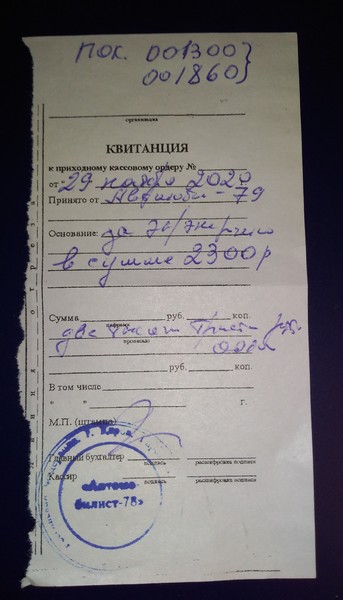 Пок. 001300}
001860}
организация
КВИТАНЦИЯ
к приходному кассовому ордеру №
от "29 ноября 2020
Принято от - 79
Основание: за эл/энергию
в сумме 2300 р
Сумма руб. коп.
цифрами
две тысячи триста руб.
прописью
руб. коп.
В том числе
" " г.
М.П. (штампа)
Главный бухгалтер
подпись расшифровка подписи
Кассир
подпись расшифровка подписи
«Автомо-
билист-78»